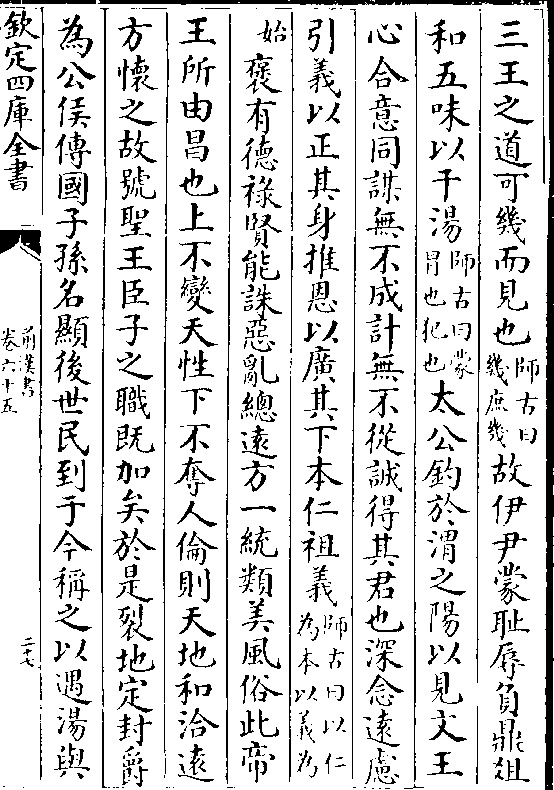 三王之道可幾而見也師古曰幾庶幾故伊尹蒙恥辱負鼎俎
和五味以干湯師古曰蒙冒也犯也太公釣於渭之陽以見文王
心合意同謀無不成計無不從誠得其君也深念遠慮
引義以正其身推恩以廣其下本仁祖義師古曰以仁為本以義為
始褒有德祿賢能誅惡亂總遠方一統類美風俗此帝
王所由昌也上不變天性下不奪人倫則天地和洽遠
方懷之故號聖王臣子之職既加矣於是裂地定封爵
為公侯傳國子孫名顯後世民到于今稱之以遇湯與
欽定四庫全書
前漢書
卷六十五
二十七